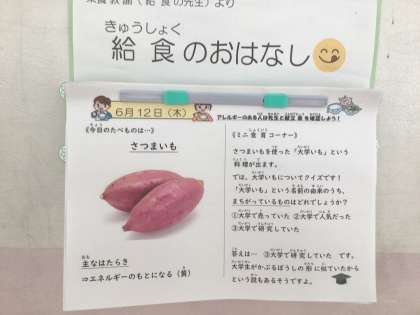 栄養教諭（給食の先生）より
きゅうしょく
給食のおはなし
6月12日（木）
アレルギーのある人は先生と献立表を確認しよう！
《今日のたべものは…》
さつまいも
主なはたらき
コエネルギーのもとになる（黄）
《ミニ食育コーナー》
さつまいもを使った「大学いも」という
料理が出ます。
では、大学いもについてクイズです！
「大学いも」という名前の由来のうち、
まちがっているものはどれでしょうか？
①大学で売っていた ②大学で人気だった
③大学で研究していた
答えは… ③大学で研究していた です。
大学生がかぶるぼうしの形に似ていたから
という説もあるそうですよ。